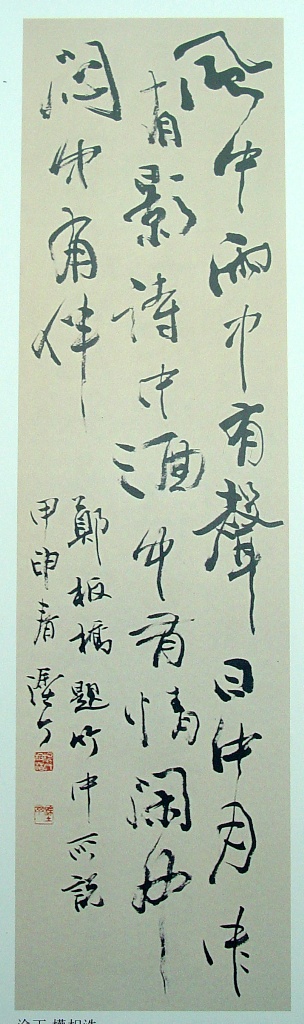 風中雨中有聲日中月中
有影詩中酒中有情閑中
悶中有伴
鄭板橋題竹中所説
甲申春